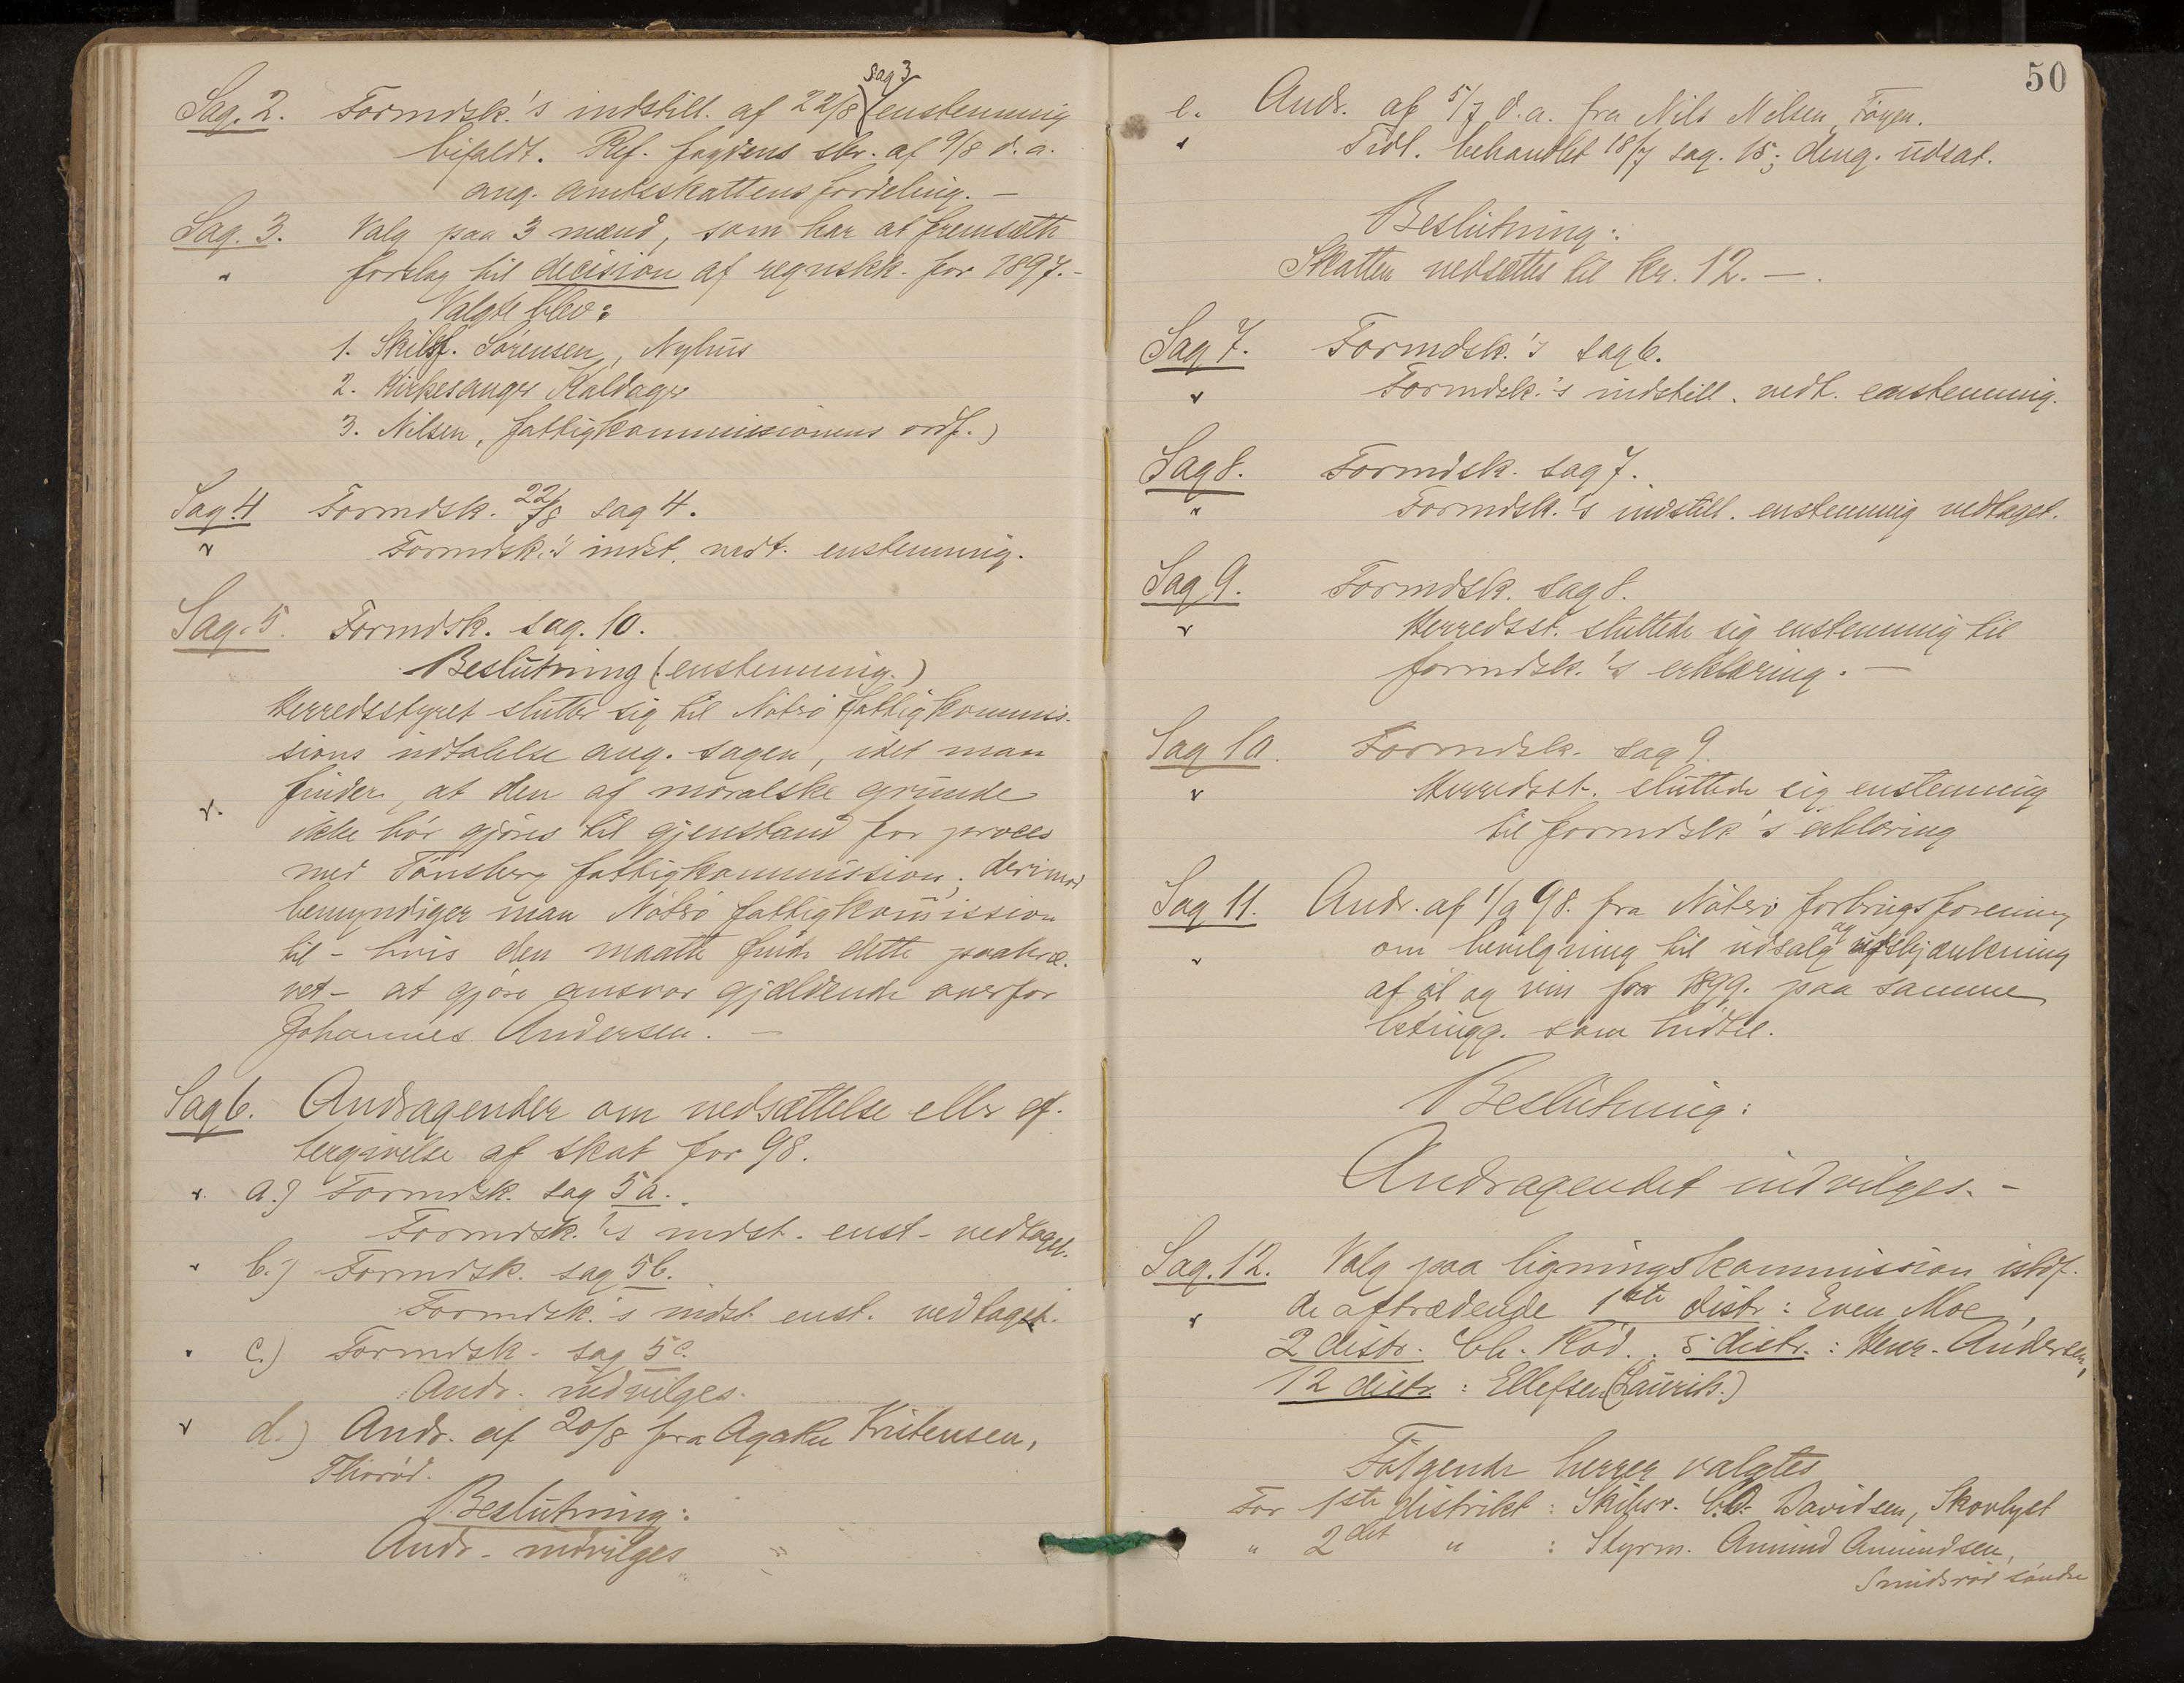 sag 3
Sag. 2. Formdsk.'s indstill. af 22/8 enstemmig
bifaldt. Ref. fogdens skr. af 9/8 d. a.
ang. amtsskattens fordeling. —
Sag. 3. Valg paa 3 mænd, som har at fremsætte
forslag til decision af regnskk. for 1897.-
Valgte blev:
1. Skibsf. Sørensen, Nyhus
2. Kirkesanger Kaldager
3. Nilsen, fattigkommissionens ordf.)
Sag 4 Formdsk. 22/8 sag 4.
Formdsk.'s indst. vedt. enstemmig.
Sag. 5. Formdsk. sag. 10.
Beslutning (: enstemmig.)
Herredsstyret slutter sig til Nøtrø fattigkommis-
sions udtalelse ang. sagen, idet man
finder, at den af moralske grunde
ikke bør gjøres til gjenstand for proces
med Tønsberg fattigkommission; derimod
bemyndiger man Nøtrø fattigkommission
til - hvis den maatte finde dette paakræ-
vet - at gjøre ansvar gjældende overfor
Johannes Andersen. —
Sag 6. Andragender om nedsættelse eller ef-
tergivelse af skat for 98.
a.) Formdsk. sag 5 a.
Formdsk.'s indst. enst. vedtaget.
b.) Formdsk. sag 5b.
Formdsk.'s indst. enst. vedtaget.
c.) Formdsk. sag 5c.
Andr. indvilges.
d.) Andr. af 20/8 fra Agathe Kristensen,
Thorød.
Beslutning:
Andr. indvilges
50
e. Andr. af 5/7 d. a. fra Nils Nilsen, Føyen.
Tidl. behandlet 18/7 sag. 15; deng. udsat.
Beslutning:
Skatten nedsættes til kr. 12. —.
Sag 7. Formdsk.'s sag 6.
Formdsk.'s indstill. vedt. enstemmig.
Sag 8. Formdsk. sag 7.
Formdsk.'s indstill. enstemmig vedtaget.
Sag 9. Formdsk. sag 8.
Herredsst. sluttede sig enstemmig til
formdsk.'s erklæring. —
Sag 10. Formdsk. sag 9.
Herredsst. sluttede sig enstemmig
til formdsk's erklæring
Sag 11. Andr. af 1/9 98. fra Nøtrø forbrugsforening
om bevilgning til udsalg og udskjænkning
af øl og vin for 1899. paa samme
betingg. som hidtil.
Beslutning:
Andragendet indvilges. -
Sag. 12. Valg paa ligningskommission istdf.
de aftrædende 1ste distr: Even Moe,
2 distr. Ch. Rød. 5 distr.: Henr. Andersen,
12 distr: Ellefsen (Laurits.)
Følgende herrer valgtes
For 1ste distrikt: Skibsr. Davidsen, Skovlyst
" 2det " : Styrm. Amund Amundsen,
Smidsrød søndre